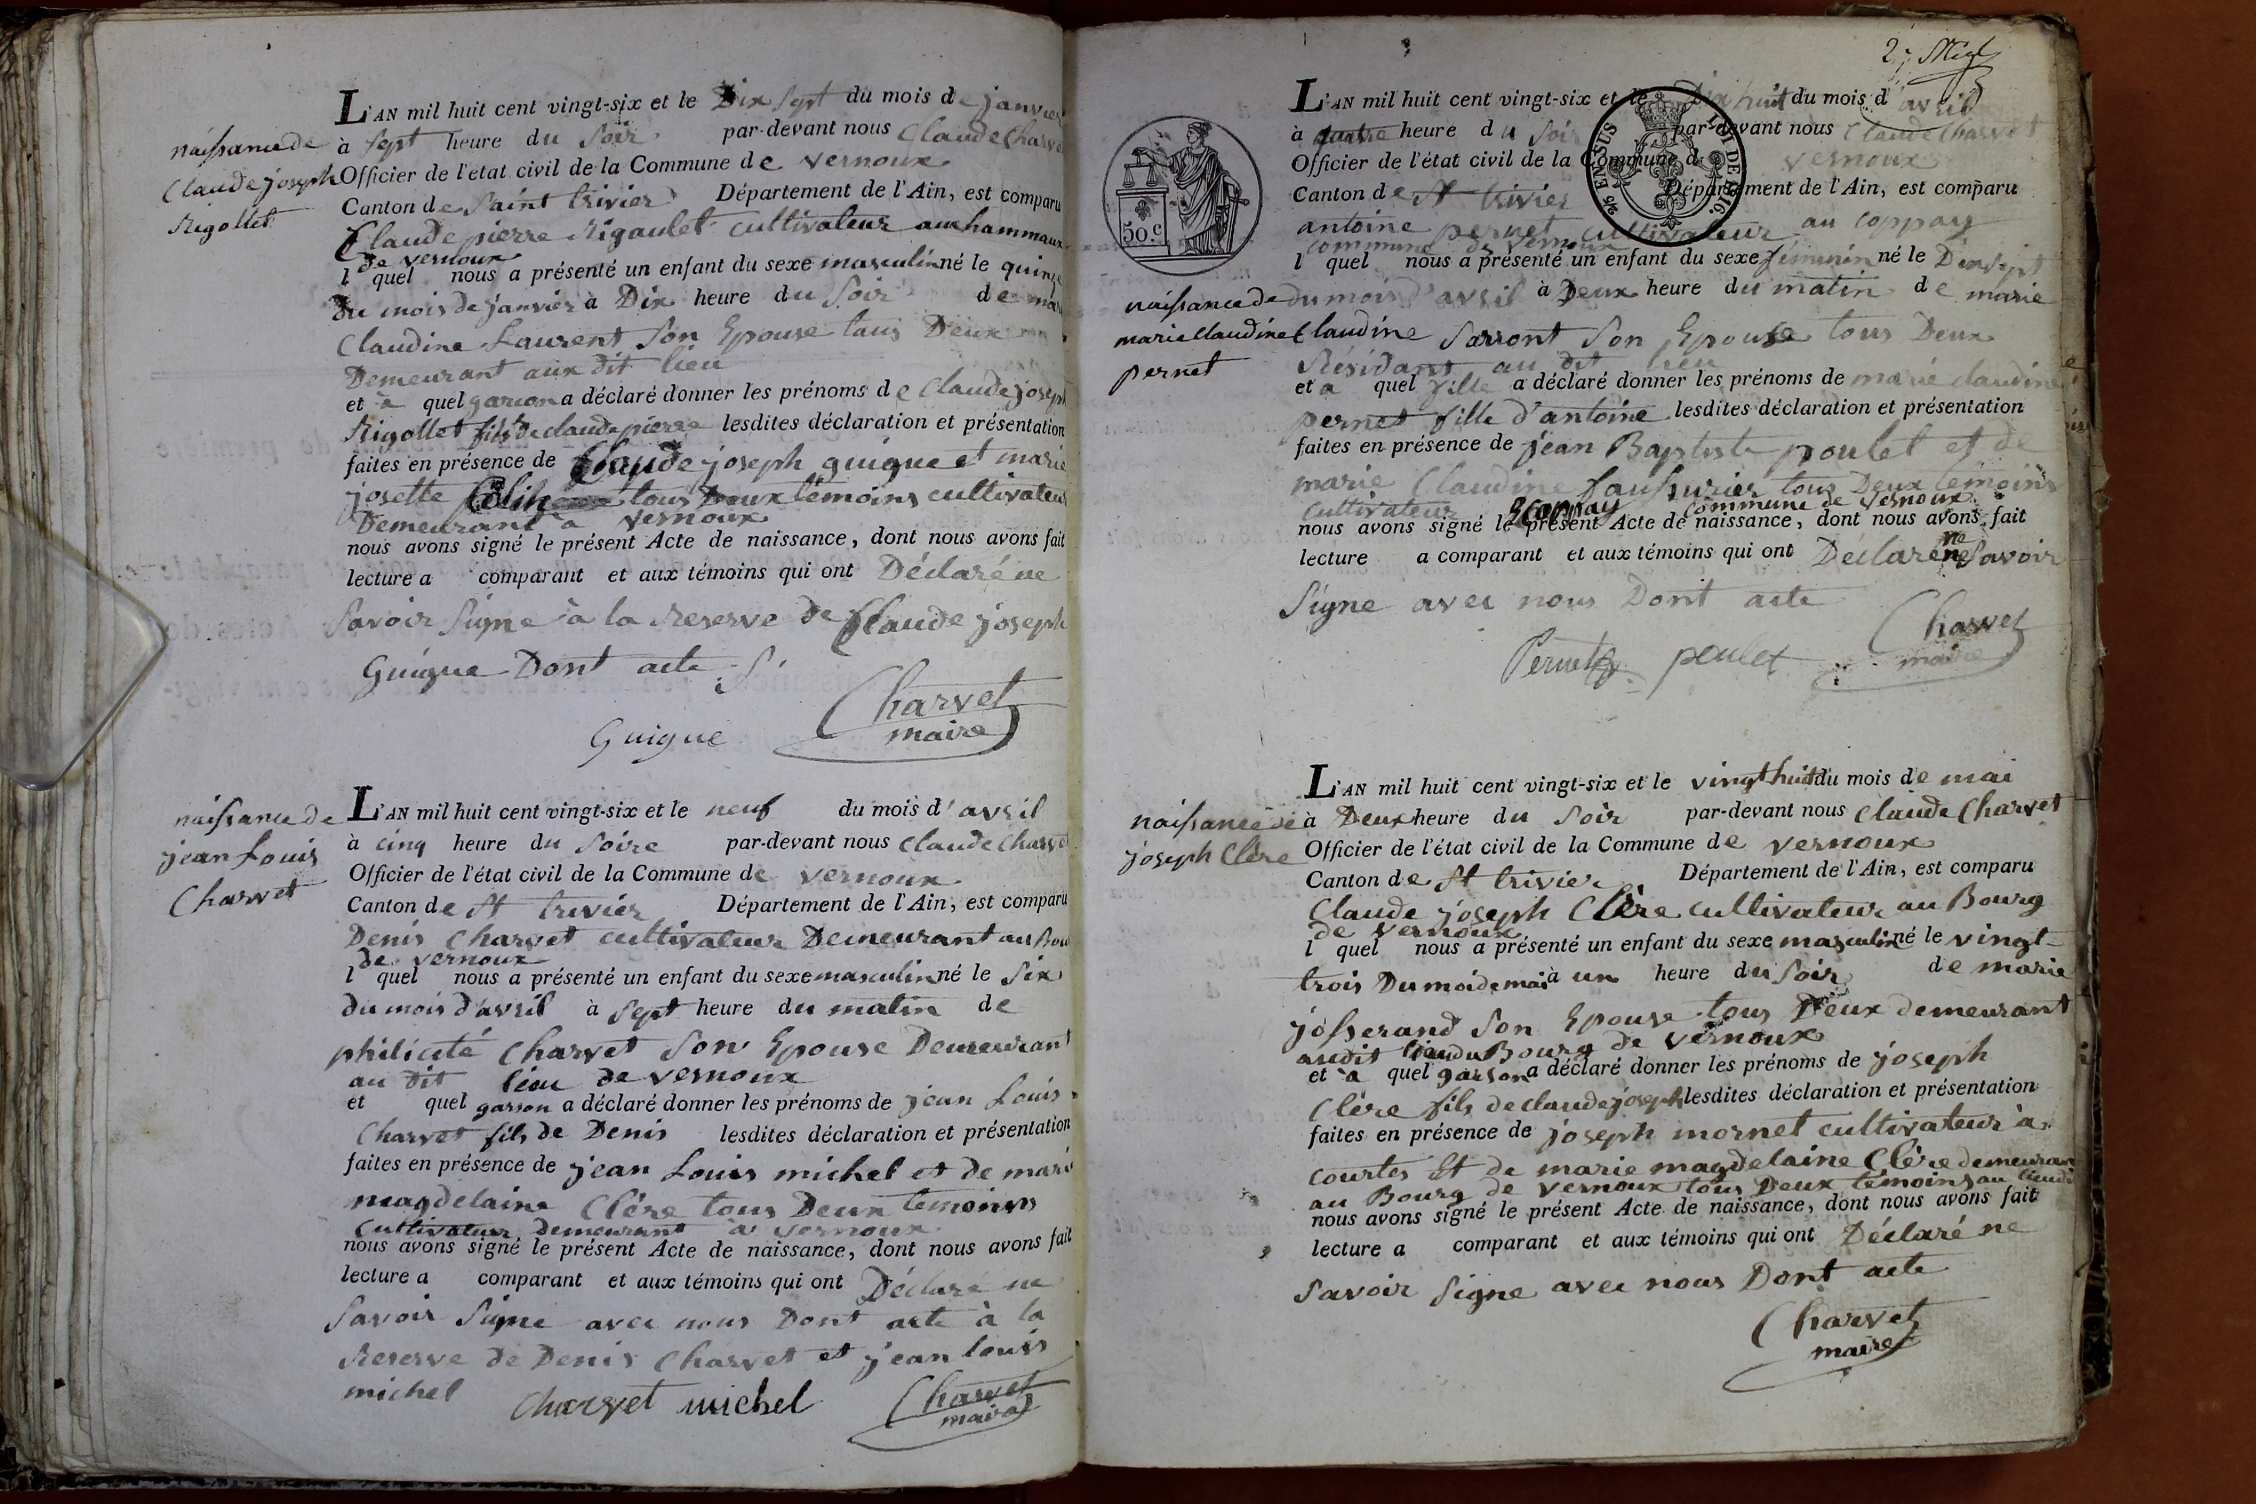 naissance de
Claude joseph
Rigollet
L'AN mil huit cent vingt-six et le Dix sept du mois de janvier
à sept heure du Soir par-devant nous Claude Charvet
Officier de l'état civil de la Commune de vernoux
Canton de Saint trivier Département de l'Ain, est comparu
Claude pierre Rigaulet cultivateur aux hammaux
de vernoux
l quel nous a présenté un enfant du sexe masculin né le quinze
Du mois de janvier à Dix heure du Soir de marie
Claudine Laurent Son Epouse tous Deux
Demeurant aux dit lieu
et à quel garcon a déclaré donner les prénoms de Claude joseph
Rigollet fils de claude pierre lesdites déclaration et présentation
faites en présence de Claude joseph guigue et marie
josette tous Deux témoins cultivateur
Demeurant à vernoux
nous avons signé le présent Acte de naissance, dont nous avons fait
lecture a comparant et aux témoins qui ont Déclaré ne
Savoir Signe à la Reserve de Claude joseph
Guigue Dont acte
Guigue Charvet
maire
naissance de
jean Louis
Charvet
L'AN mil huit cent vingt-six et le neuf du mois d'avril
à cinq heure du Soire par-devant nous Claude Charvet
Officier de l'état civil de la Commune de vernoux
Canton de St trivier Département de l'Ain, est comparu
Denis Charvet cultivateur Demeurant au Bourg
de vernoux
l quel nous a présenté un enfant du sexe masculin né le Six
du mois d'avril à Sept heure du matin de
philicité Charvet Son Epouse Demeurant
au dit lieu de vernoux
et quel garson a déclaré donner les prénoms de jean Louis
Charvet fils de Denis lesdites déclaration et présentation
faites en présence de jean Louis michel et de marie
magdelaine Clére tous Deux temoins
Cultivateur demeurant à vernoux
nous avons signé le présent Acte de naissance, dont nous avons fait
lecture a comparant et aux témoins qui ont Déclaré ne
Savoir Signe avec nous Dont acte à la
Reserve de Denis Charvet et jean louis
michel Charvet michel Charvet
maire
27
50.c
25 EN SUS
LOI DE 1816.
naissance de
marie Claudine
pernet
L'AN mil huit cent vingt-six et le Dix huit du mois d'avril
à quatre heure du Soir par-devant nous Claude Charvet
Officier de l'état civil de la Commune de vernoux
Canton de St trivier Département de l'Ain, est comparu
antoine pernet cultivateur au coppay
commune de vernoux
l quel nous a présenté un enfant du sexe féminin né le Dix sept
du mois d'avril à Deux heure du matin de marie
Claudine Sarront Son Epouse tous Deux
Résidant au dit lieu
et a quel fille a déclaré donner les prénoms de marie claudine
pernet fille d'antoine lesdites déclaration et présentation
faites en présence de jean Baptiste poulet et de
marie Claudine tous Deux témoins
cultivateur coppay commune de vernoux
nous avons signé le présent Acte de naissance, dont nous avons fait
lecture a comparant et aux témoins qui ont Déclaré ne Savoir
Signe avec nous Dont acte
Pernet poulet Charvet
maire
naissance de
joseph Clére
L'AN mil huit cent vingt-six et le vingt huit du mois de mai
à Deux heure du Soir par-devant nous Claude Charvet
Officier de l'état civil de la Commune de vernoux
Canton de St trivier Département de l'Ain, est comparu
Claude joseph Clére cultivateur au Bourg
de vernoux
l quel nous a présenté un enfant du sexe masculin né le vingt-
trois Du moi de mai à un heure du Soir de marie
josserand Son Epouse tous Deux demeurant
audit lieu du Bourg de vernoux
et à quel garson a déclaré donner les prénoms de joseph
Clére fils de claude joseph lesdites déclaration et présentation
faites en présence de joseph mornet cultivateur à
courtes Et de marie magdelaine Clére demeurant
au Bourg de vernoux tous Deux témoins
nous avons signé le présent Acte de naissance, dont nous avons fait
lecture a comparant et aux témoins qui ont Déclaré ne
Savoir Signe avec nous Dont acte
Charvet
maire